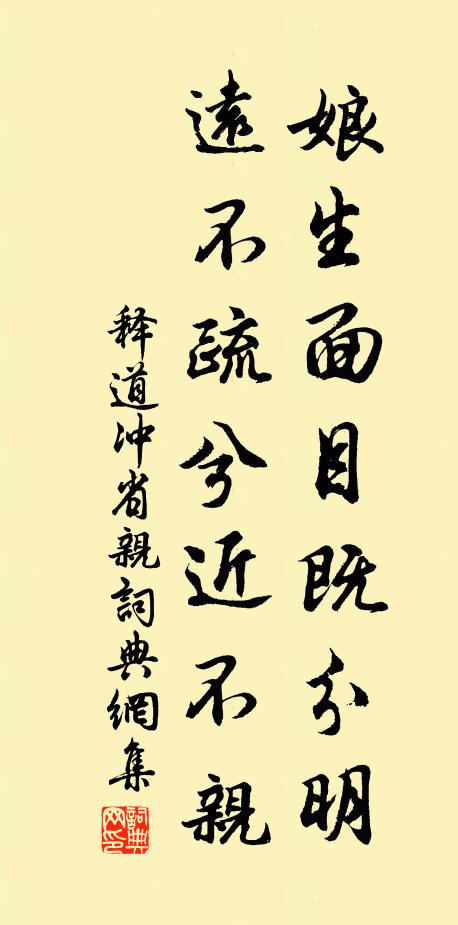 娘生面目既分明
遠不疏兮近不親
释道冲省親詞典網集
詞典网印